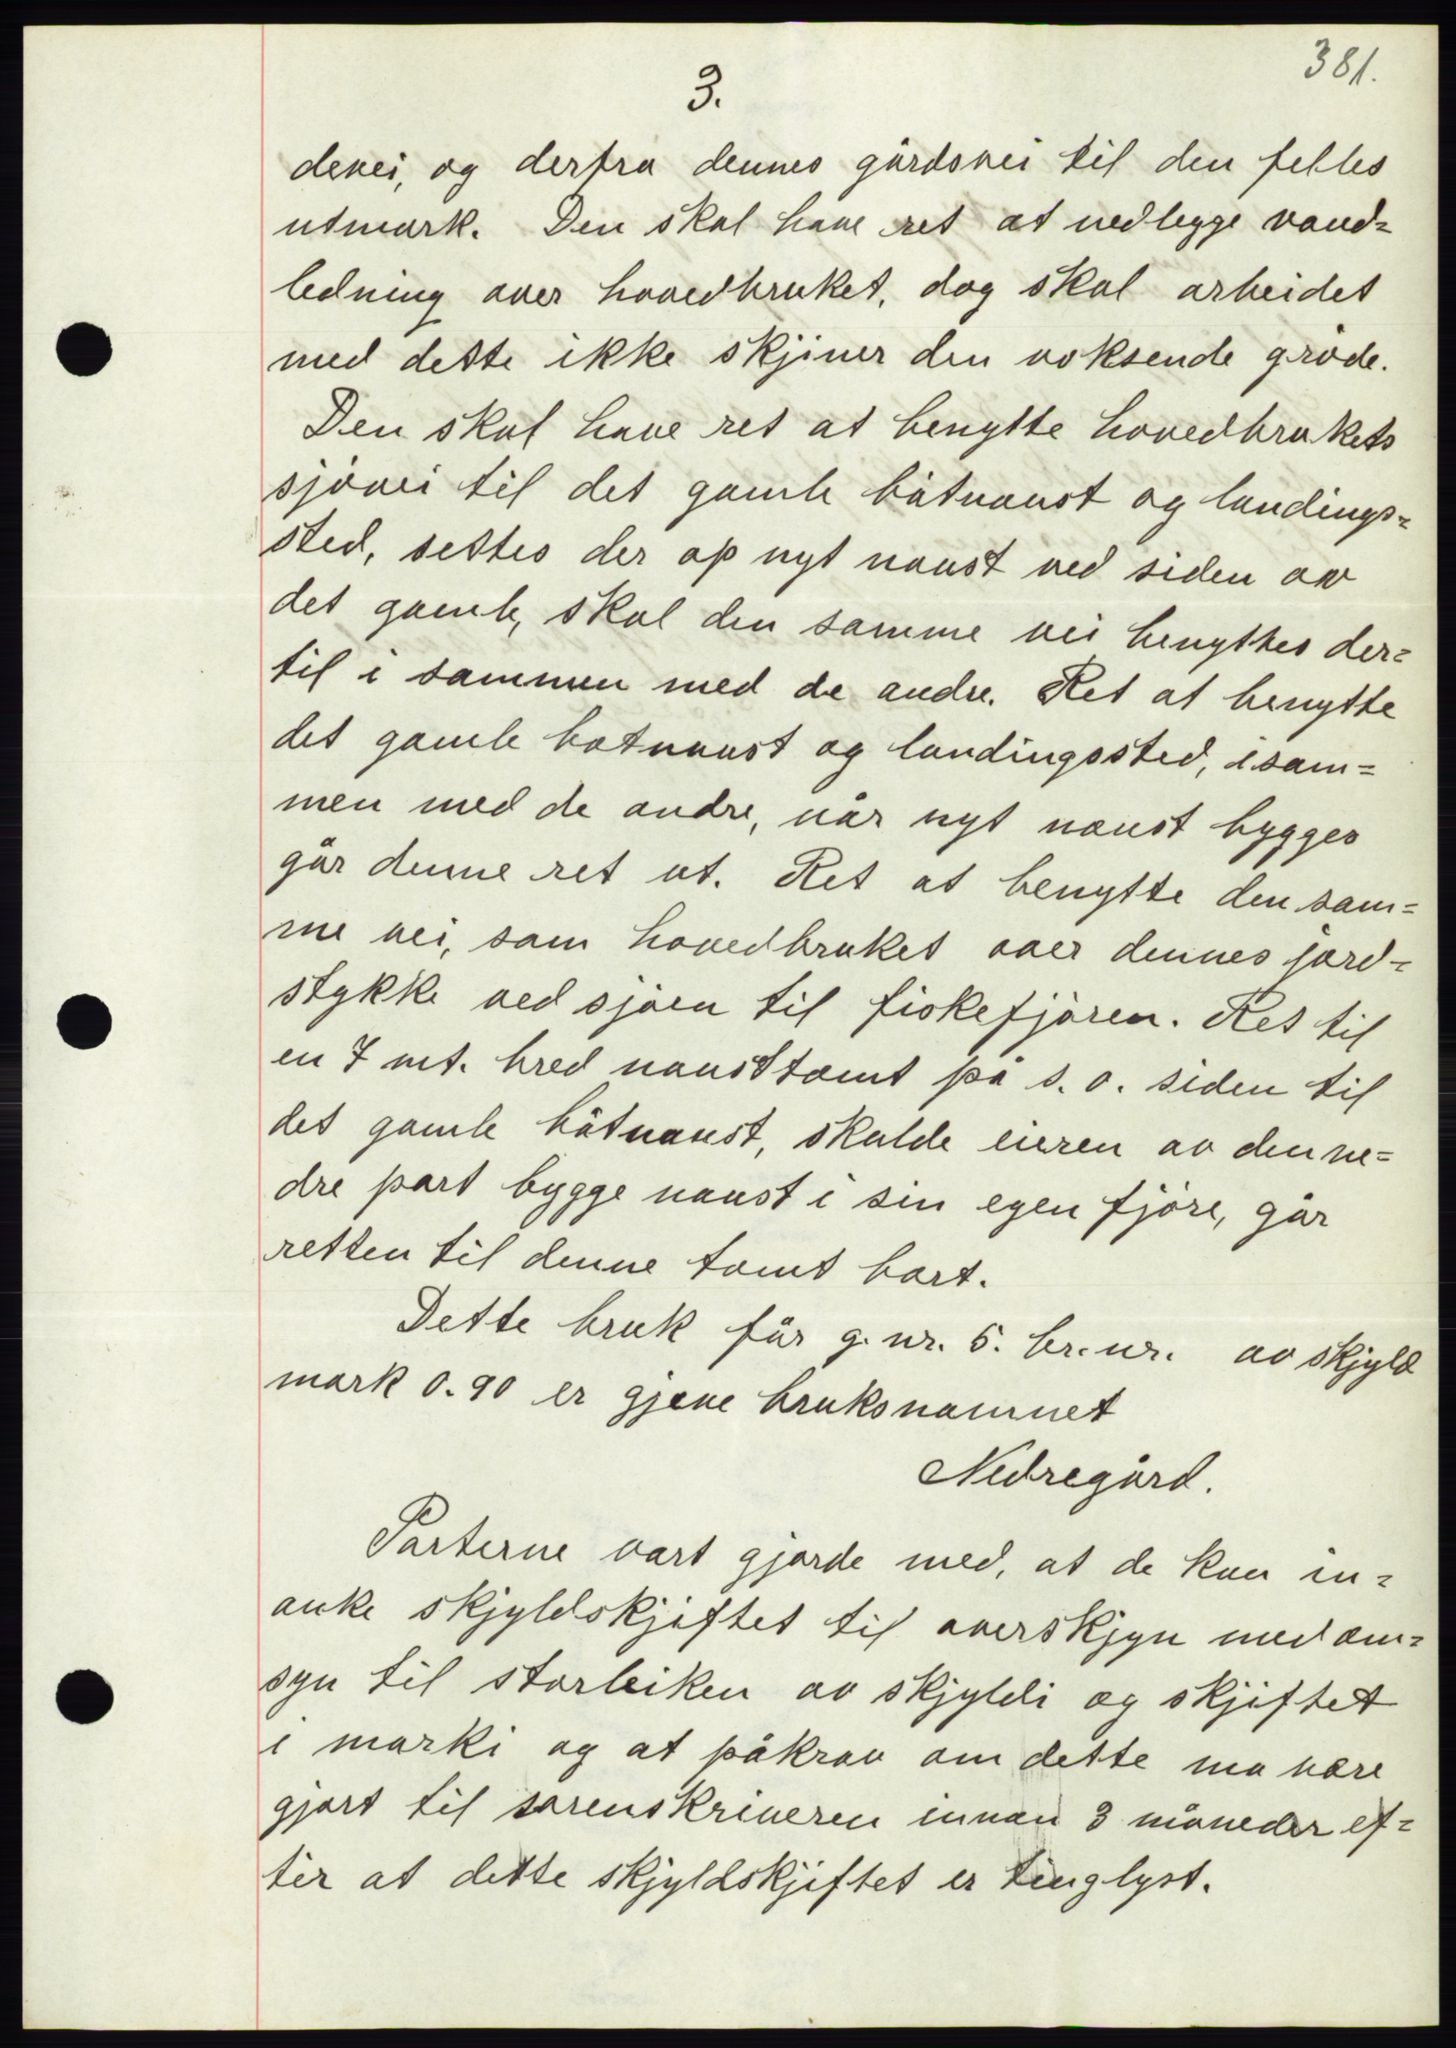 381.
3.
devei, og derfra dennes gårdsvei til den felles
utmark. Den skal have ret at nedlegge vand=
ledning over hovedbruket, dog skal arbeidet
med dette ikke skjiner den voksende gröde.
Den skal have ret at benytte hovedbrukets
sjövei til det gamle båtnaust og landings=
sted, settes der op nyt naust ved siden av
det gamle, skal den samme vei benyttes der=
til i sammen med de andre. Ret at benytte
det gamle botnaust og landingssted, isam=
men med de andre, når nyt naust bygges
går denne ret ut. Ret at benytte den sam=
me vei, som hovedbruket over dennes jord=
stykke ved sjøen til fiskefjören. Ret til
en 7 mt. bred nausttomt på s. o. siden til
det gamle båtnaust, skulde eieren av den ne=
dre part bygge naust i sin egen fjöre, går
retten til denne tomt bort.
Dette bruk får g. nr. 5. br. nr. av skjyld
mark 0.90 er gjeve bruksnamnet
Nedregård.
Parterne vart gjorde med, at de kan in=
anke skjyldskjiftet til overskjyn med om=
syn til storleiken av skjyldi og skjiftet
i marki og at påkrav om dette ma være
gjort til sorenskriveren innan 3 måneder ef=
ter at dette skjyldskjiftet er tinglyst.